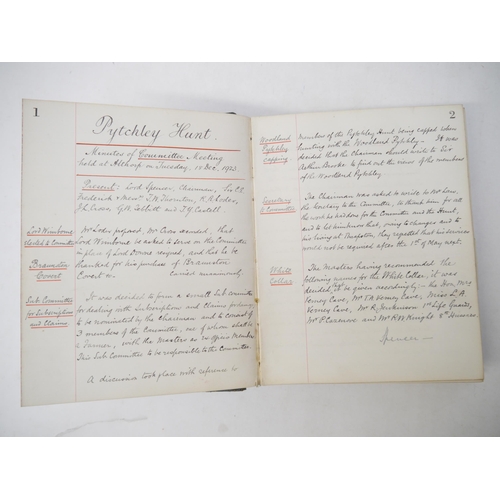 1
Pytchley Hunt.
Minutes of Committee Meeting
held at Althorp on Tuesday, 18 Dec. 1923
Present: Lord Spencer, Chairman,
Frederick, Messrs T.W. Thornton,
Lord Wimborne
elected to Committee
Mr Loder proposed, seconded, that
Lord Wimborne be asked to serve on the Committee
in place of resigned, and that he be
Braunston
Covert
thanked for his purchase of Braunston
Covert carried unanimously.
Sub Committee
for Subscriptions
and Claims
It was decided to form a small Sub Committee
for dealing with Subscriptions and Claims
to be nominated by the Chairman and to consist of
3 members of the Committee, one of whom shall be
a Farmer, with the Masters as ex officio Members
This Sub Committee to be responsible to the Committee
A discussion took place with reference to
2
Woodland
Pytchley
capping
Members of the Pytchley Hunt being capped when
hunting with the Woodland Pytchley. It was
decided that the Chairman should write to Sir
Arthur Brooke to find out the views of the members
of the Woodland Pytchley
Secretary
to Committee
The Chairman was asked to write to Mr
the Secretary to the Committee, to thank him for all
the work he had done for the Committee and the Hunt,
and to let him know that, owing to changes and to
his living at Brixworth, they regretted that his services
would not be required after the 1st of May next.
White
Collar
The Masters having recommended the
following names for the White Collar, it was
decided to give accordingly - the Hon. Mrs
Verney Cave, Mr T.A. Verney Cave, Miss
Verney Cave, Mr R. 1st Life Guards,
Mr and Mr R.W. Knight 8th Hussars
Spencer